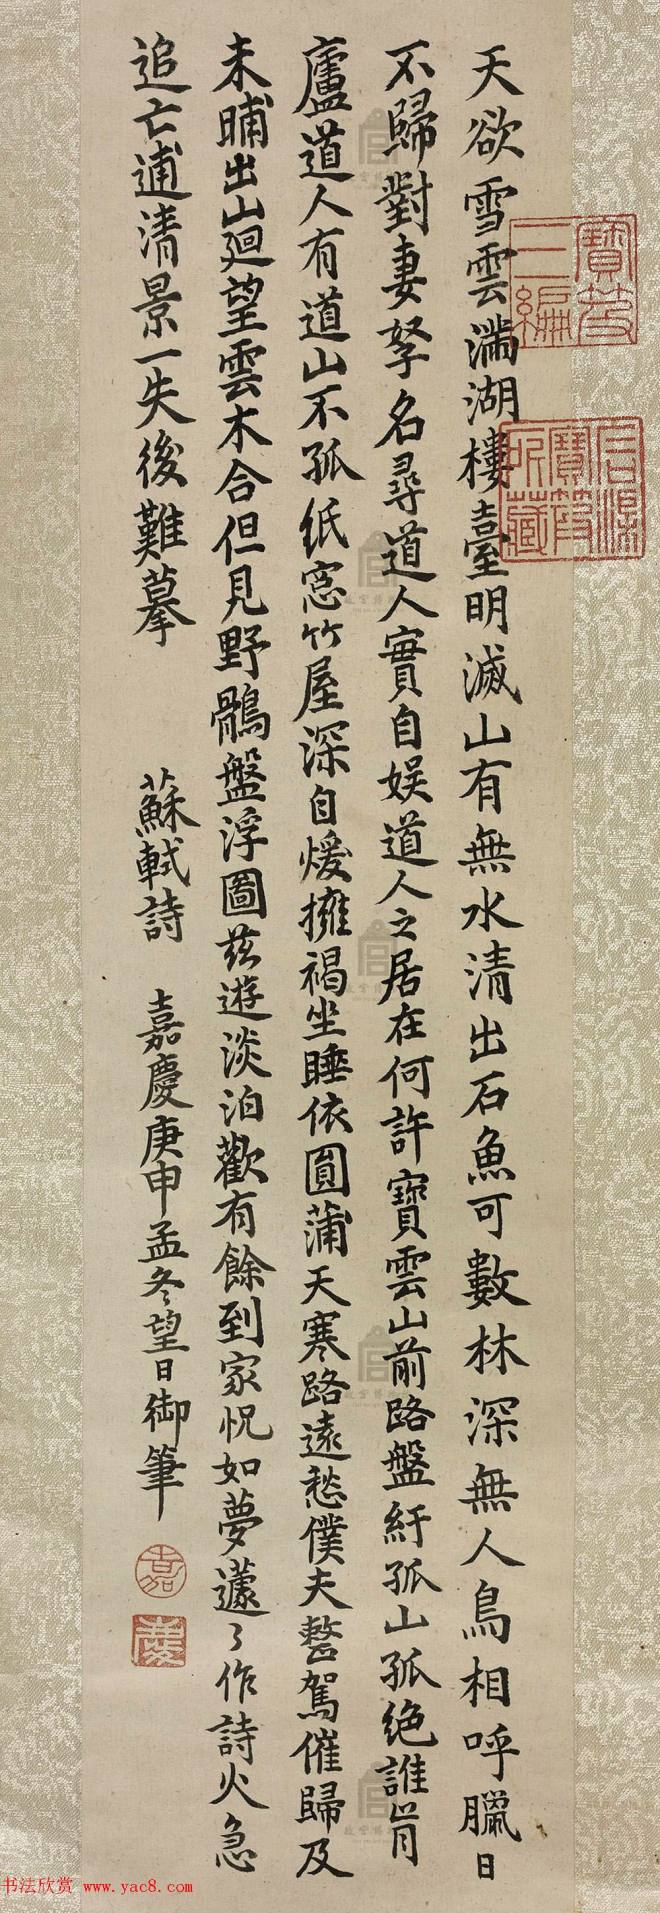 天欲雪雲滿湖樓臺明滅山有無水清出石魚可數林深無人鳥相呼臘日
不歸對妻孥名尋道人實自娱道人之居在何許寶雲山前路盤紆孤山孤絶誰肯
廬道人有道山不孤紙窓竹屋深自煖擁褐坐睡依圎蒲天寒路遠愁僕夫整駕催歸及
未晡出山廻望雲木合但見野鶻盤浮圖兹遊淡泊歡有餘到家怳如夢蘧々作詩火急
追亡逋清景一失後難摹
蘇軾詩
嘉慶庚申孟冬望日御筆
嘉
慶
寶笈
三編
石渠
寶笈
所藏
书法欣赏 www.yac8.com